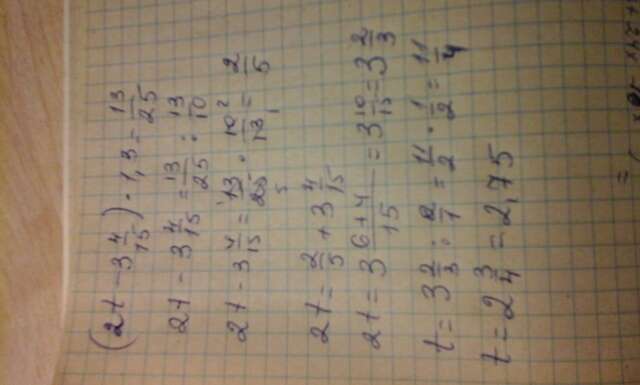 (2t - 3 4/15) · 1,3 = 13/25
2t - 3 4/15 = 13/25 : 13/10
2t - 3 4/15 = 13/25 · 10/13 = 2/5
2t = 2/5 + 3 4/15
2t = 3 6+4/15 = 3 10/15 = 3 2/3
t = 3 2/3 : 2/1 = 11/2 · 1/2 = 11/4
t = 2 3/4 = 2,75